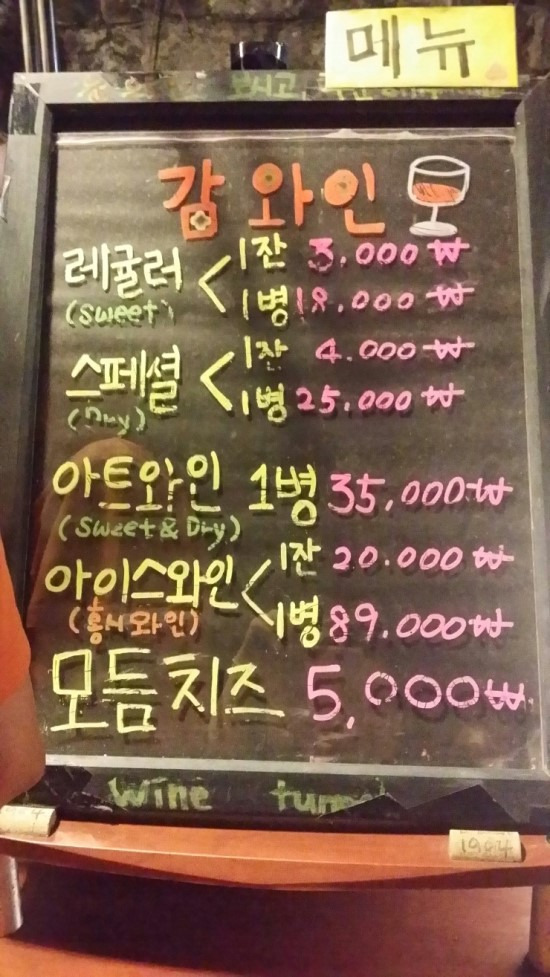 메뉴
감 와인
레귤러 1잔 3.000 ₩
(Sweet) 1병 18.000 ₩
스페셜 1잔 4.000 ₩
(Dry) 1병 25.000 ₩
아트와인 1병 35.000 ₩
(Sweet & Dry)
아이스와인 1잔 20.000 ₩
(홍시와인) 1병 89.000 ₩
모듬치즈 5,000 ₩
wine
1984